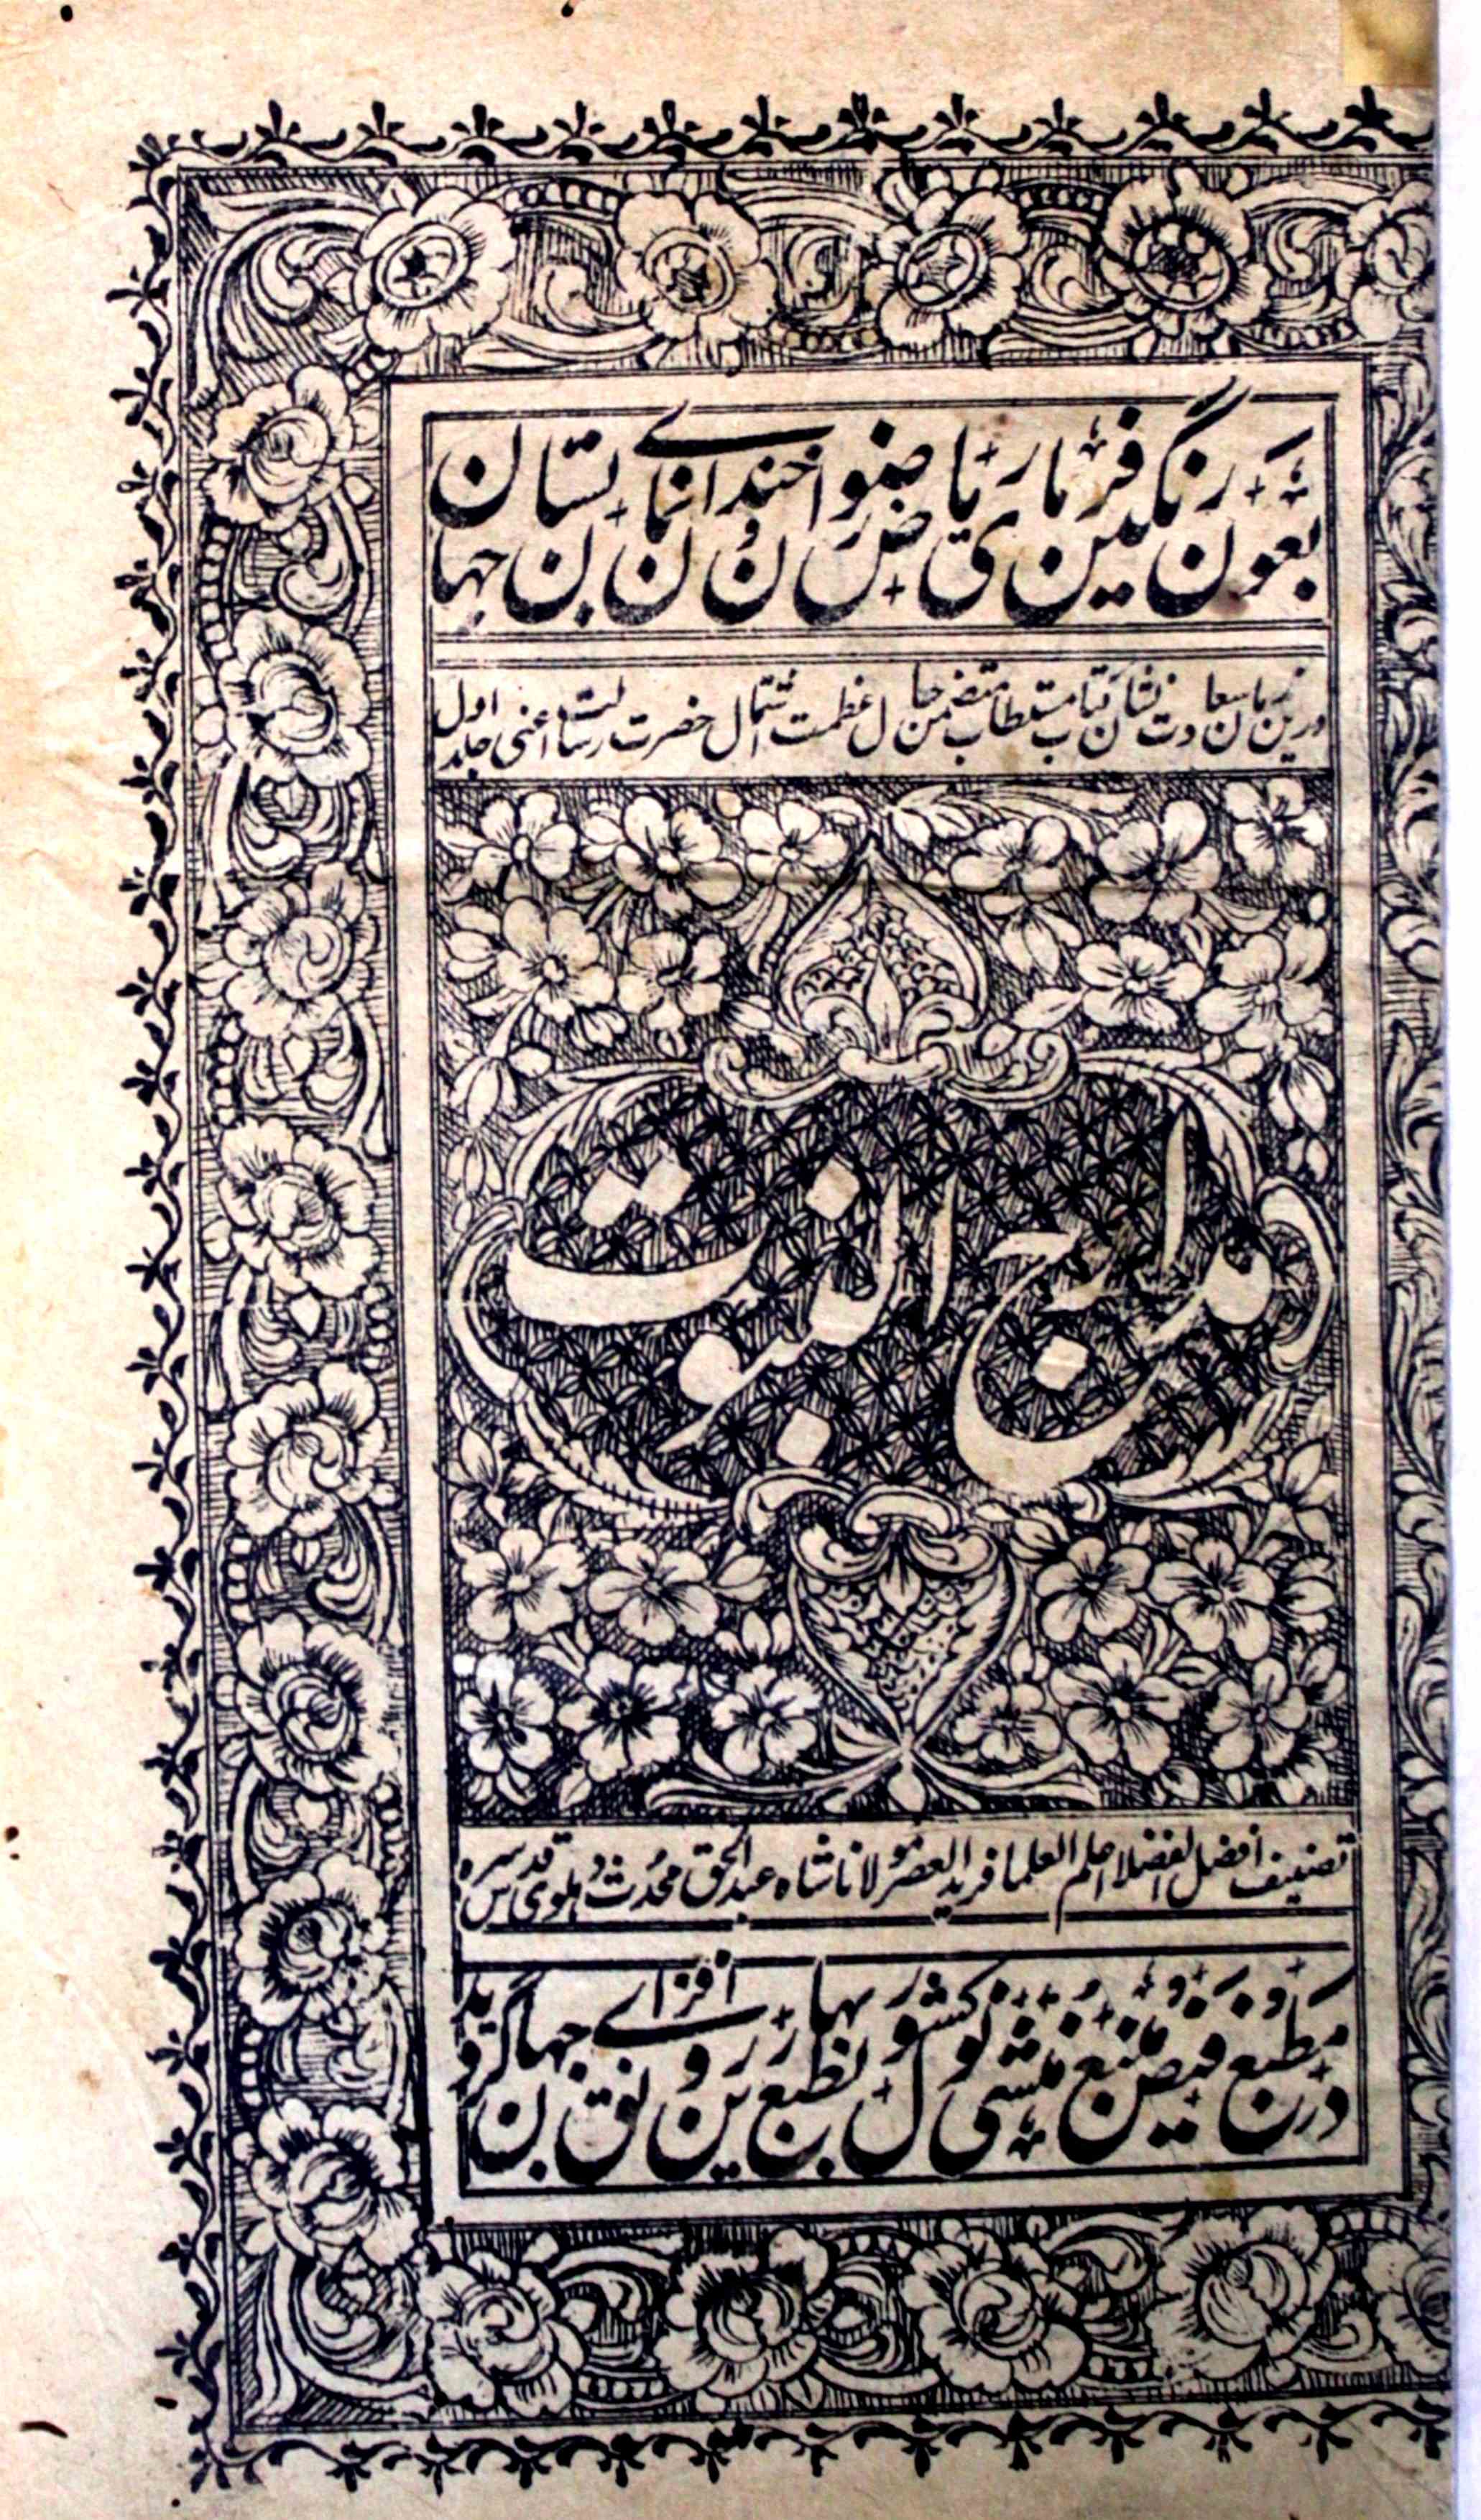 بعون رنگین فرمای ریاض رضوان و خندانندۂ بستان جہان
درین زمان سعادت نشان کتاب مستطاب متضمن حال عظمت اشتمال حضرت رسالت اعنی جلد اول
مدارج النبوت
تصنیف افضل الفضلا اعلم العلما فرید العصر مولانا شاہ عبد الحق محدث دہلوی قدس سرہ
در مطبع فیض منبع منشی نولکشور بطبع بہارین رونق افزاے جہان گردید